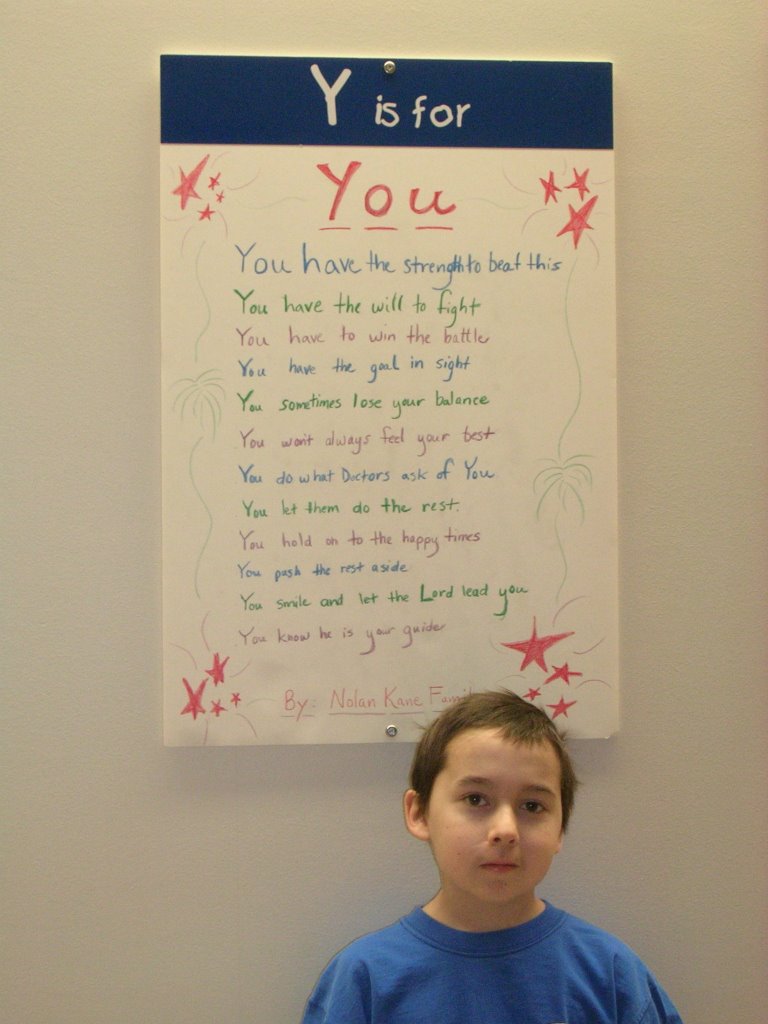 Y is for
You
You have the strength to beat this
You have the will to fight
You have to win the battle
You have the goal in sight
You sometimes lose your balance
You won't always feel your best
You do what Doctors ask of You
You let them do the rest.
You hold on to the happy times
You push the rest aside
You smile and let the Lord lead you
You know he is your guider
By: Nolan Kane Famil